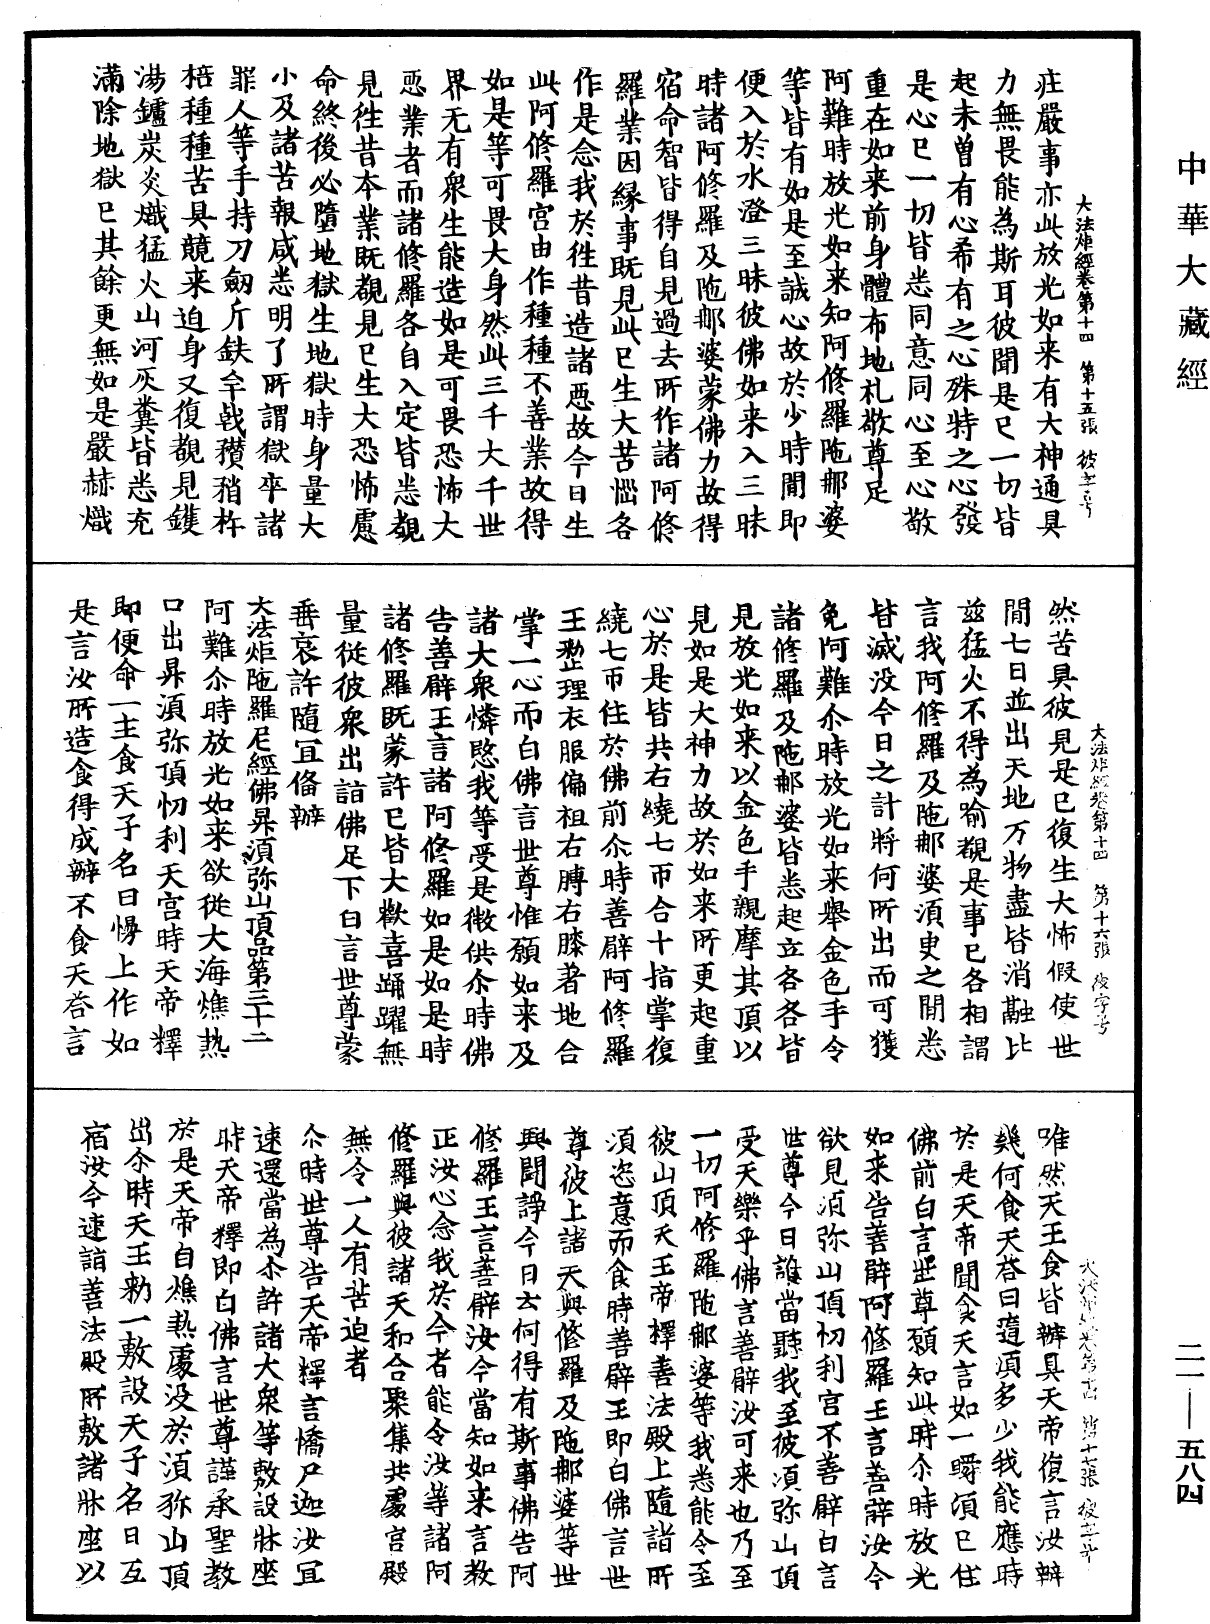 中華大藏經
大法炬經卷第十四　第十五張　彼字号
庄嚴事亦此放光如来有大神通具
力無畏能為斯耳彼聞是巳一切皆
起未曾有心希有之心殊特之心發
是心巳一切皆悉同意同心至心敬
重在如来前身體布地礼敬尊足
阿難時放光如来知阿修羅陁䣕婆
等皆有如是至誠心故於少時間即
便入於水澄三昧彼佛如来入三昧
時諸阿修羅及陁䣕婆蒙佛力故得
宿命智皆得自見過去所作諸阿修
羅業因縁事既見此巳生大苦惱各
作是念我於徃昔造諸惡故今日生
此阿修羅宫由作種種不善業故得
如是等可畏大身然此三千大千世
界无有衆生能造如是可畏恐怖大
惡業者而諸修羅各自入定皆悉覩
見徃昔本業既覩見巳生大恐怖慮
命終後必墮地獄生地獄時身量大
小及諸苦報咸悉明了所謂獄卒諸
罪人等手持刀劒斤鈇伞戟䂎矟杵
棓種種苦具競来迫身又復覩見鑊
湯鑪炭炎熾猛火山河灰糞皆悉充
滿除地獄巳其餘更無如是嚴赫熾
大法炬經卷第十四　第十六張　彼字号
然苦具彼見是巳復生大怖假使世
間七日並出天地万物盡皆消融比
兹猛火不得為喻覩是事巳各相謂
言我阿修羅及陁䣕婆須臾之間悉
皆滅没今日之計將何所出而可獲
免阿難尒時放光如来舉金色手令
諸修羅及陁䣕婆皆悉起立各各皆
見放光如来以金色手親摩其頂以
見如是大神力故於如来所更起重
心於是皆共右繞七帀合十指掌復
繞七帀住於佛前尒時善臂阿修羅
王整理衣服偏袒右膊右膝著地合
掌一心而白佛言世尊惟願如来及
諸大衆憐愍我等受是微供尒時佛
告善臂王言諸阿修羅如是如是時
諸修羅既蒙許巳皆大歡喜踊躍無
量從彼衆出詣佛足下白言世尊蒙
垂哀許隨宜俻辦
大法炬陁羅尼經佛昇湏弥山頂品第三十二
阿難尒時放光如来欲從大海燋热
口出昇湏弥頂忉利天宫時天帝釋
即便命一主食天子名曰憦上作如
是言汝所造食得成辦不食天荅言
大法炬經卷第十四　第十七張　彼字号
唯然天王食皆辦具天帝復言汝辦
幾何食天荅曰隨須多少我能應時
於是天帝聞食天言如一瞬須巳住
佛前白言世尊願知此時尒時放光
如来告善臂阿修羅王言善臂汝今
欲見湏弥山頂忉利宫不善臂白言
世尊今日誰當聽我至彼湏弥山頂
受天樂乎佛言善臂汝可来也乃至
一切阿修羅陁䣕婆等我悉能令至
彼山頂天王帝釋善法殿上隨諸所
湏恣意而食時善臂王即白佛言世
尊彼上諸天與修羅及陁䣕婆等世
與鬪諍今日云何得有斯事佛告阿
修羅王言善臂汝今當知如来言教
正汝心念我於今者能令汝等諸阿
修羅與彼諸天和合聚集共處宫殿
無令一人有苦迫者
尒時世尊告天帝釋言憍尸迦汝宜
速還當為尒許諸大衆等敷設牀座
時天帝釋即白佛言世尊謹承聖教
於是天帝自燋热處没於湏弥山頂
出尒時天王勑一敷設天子名曰互
宿汝今速詣善法殿所敷諸牀座以
二一—五八四